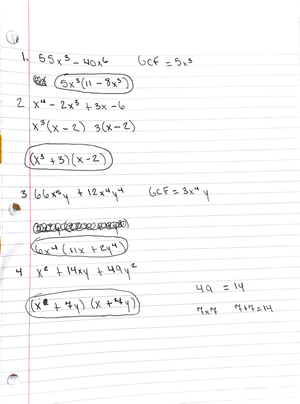 1. 55x³ - 40x⁶ GCF = 5x³
5x³(11 - 8x³)
2 x⁴ - 2x³ + 3x - 6
x³(x - 2) 3(x - 2)
(x³ + 3)(x - 2)
3 66x⁵y + 12x⁴y⁴ GCF = 3x⁴y
6x⁴(11x + 2y⁴)
4 x² + 14xy + 49y²
(x + 7y) (x + 7y)
49 = 14
7x7 7+7=14